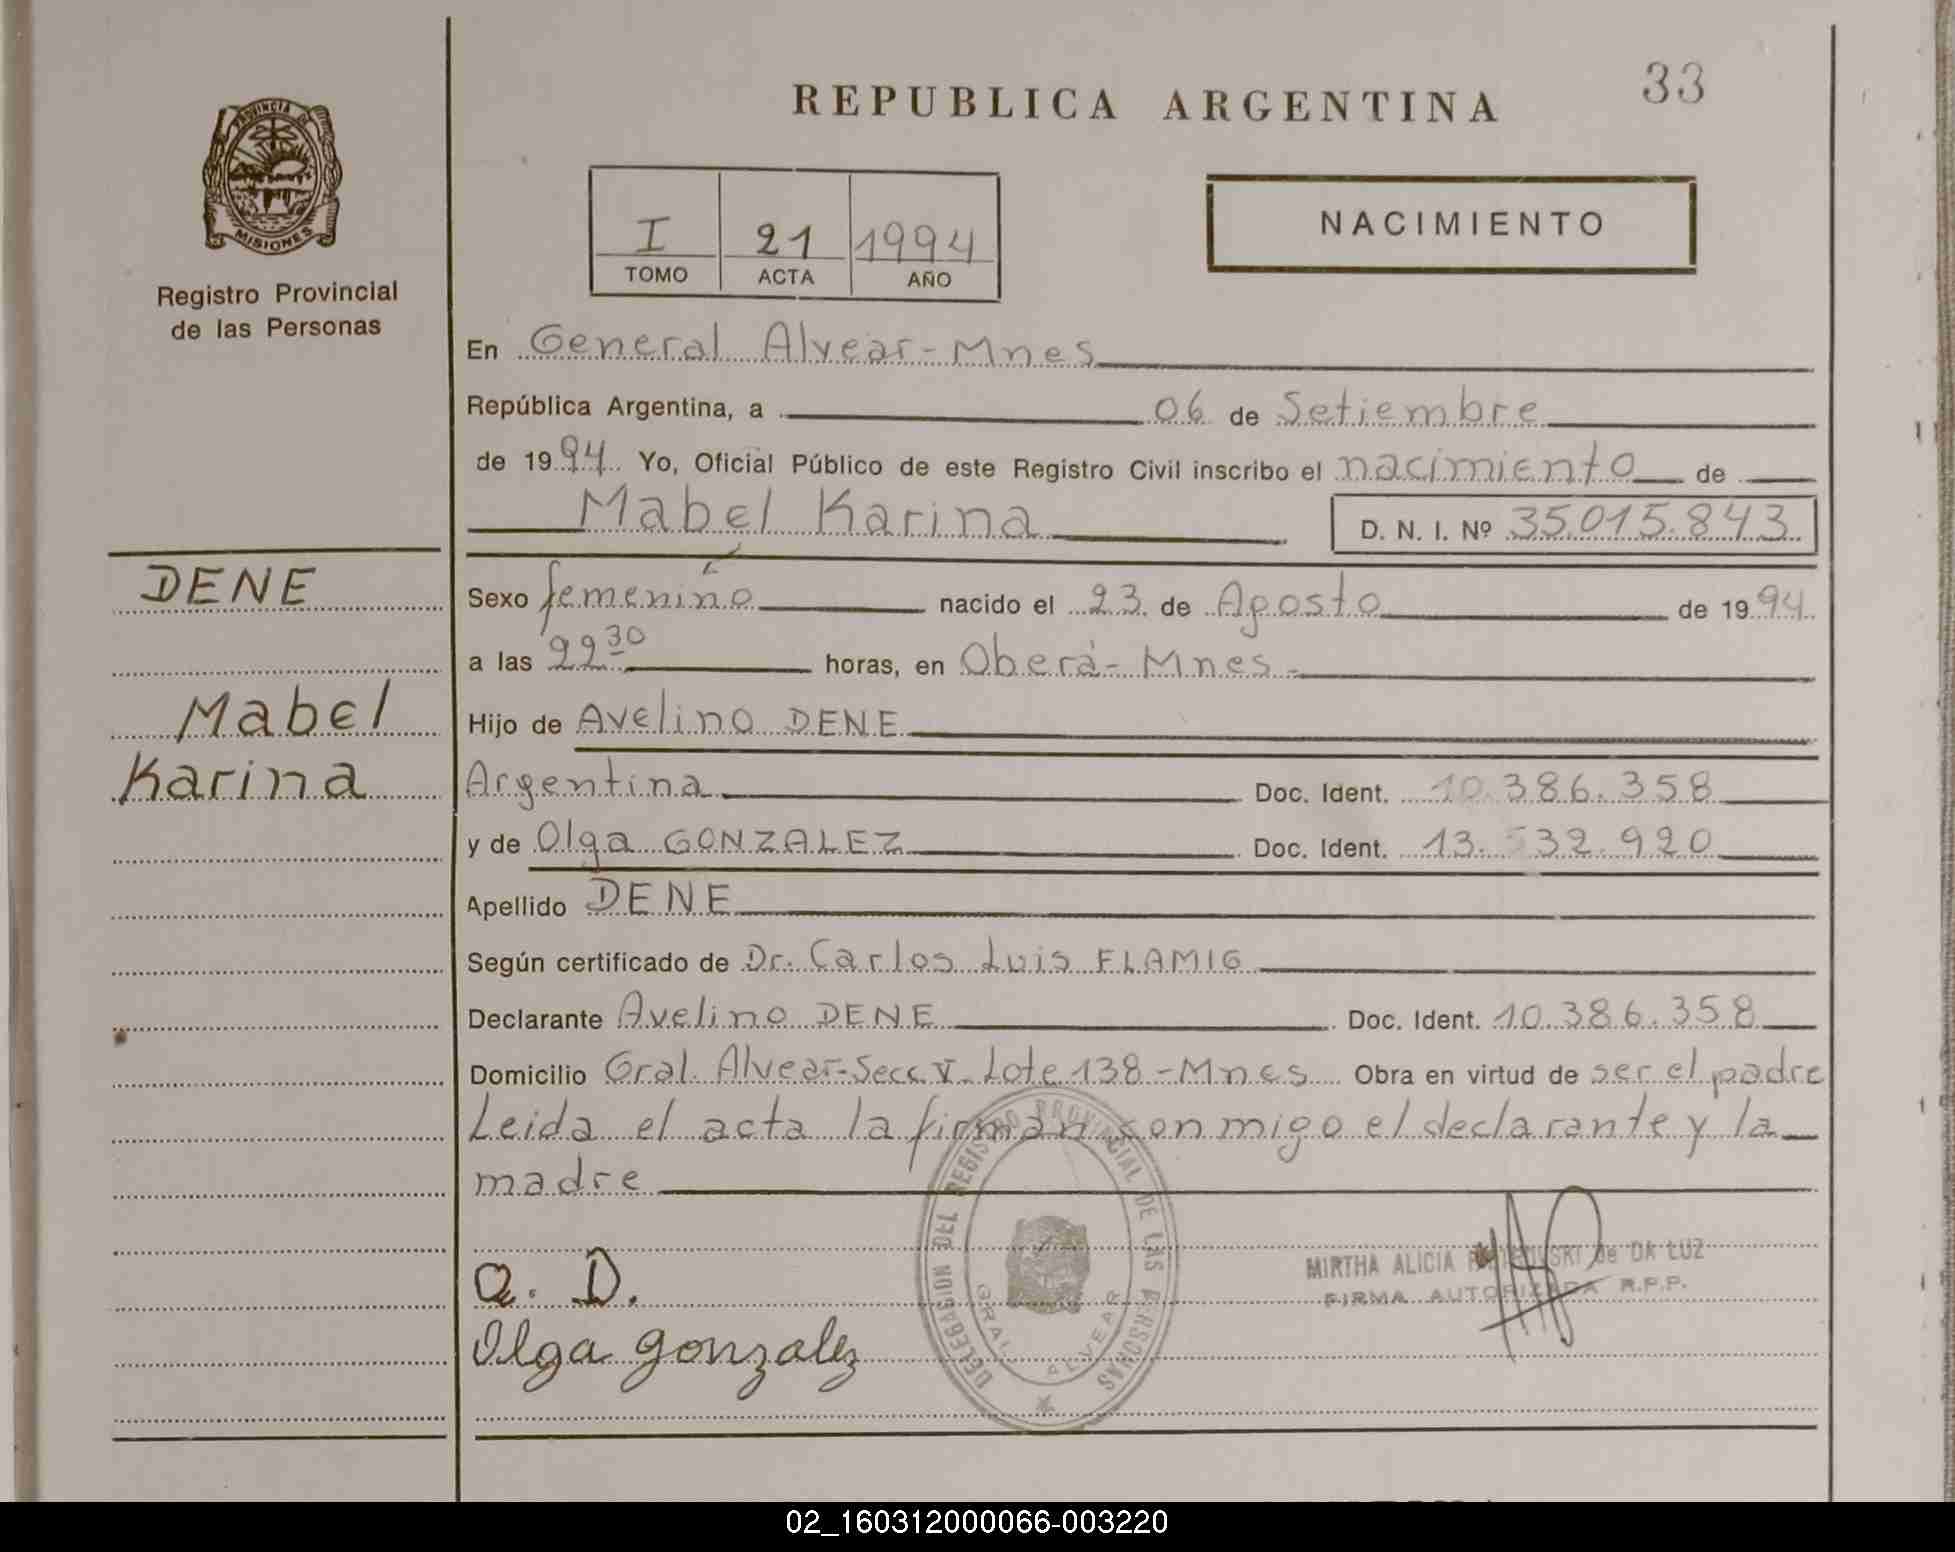 33
REPUBLICA ARGENTINA
PROVINCIA DE
MISIONES
Registro Provincial
de las Personas
I 21 1994
TOMO ACTA AÑO
NACIMIENTO
En General Alvear-Mnes
República Argentina, a 06 de Setiembre
de 1994 Yo, Oficial Público de este Registro Civil inscribo el nacimiento de
Mabel Karina D. N. I. Nº 35.015.843
DENE
Mabel
Karina
Sexo femenino nacido el 23 de Agosto de 1994
a las 22 30 horas, en Oberá-Mnes-
Hijo de Avelino DENE
Argentina Doc. Ident. 10.386.358
y de Olga GONZALEZ Doc. Ident. 13.532.920
Apellido DENE
Según certificado de Dr. Carlos Luis FLAMIG
Declarante Avelino DENE Doc. Ident. 10.386.358
Domicilio Gral. Alvear-Secc. V-Lote 138-Mnes Obra en virtud de ser el padre
Leida el acta la firman conmigo el declarante y la
madre
DELEGASION DEL REGISTRO PROVINCIAL DE LAS PERSONAS
GRAL. ALVEAR
MIRTHA ALICIA de DA LUZ
FIRMA AUTORIZADA R.P.P.
a. D.
Olga gonzalez
02_160312000066-003220